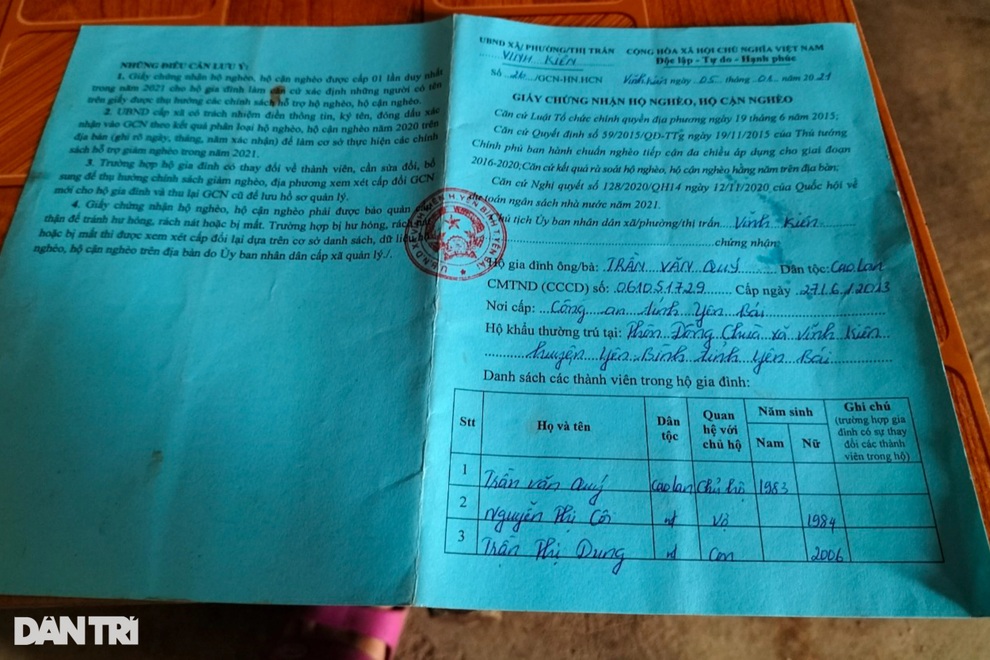 NHỮNG ĐIỀU CẦN LƯU Ý:
1. Giấy chứng nhận hộ nghèo, hộ cận nghèo được cấp 01 lần duy nhất
trong năm 2021 cho hộ gia đình làm căn cứ xác định những người có tên
trên giấy được thụ hưởng các chính sách hỗ trợ hộ nghèo, hộ cận nghèo.
2. UBND cấp xã có trách nhiệm điền thông tin, ký tên, đóng dấu xác
nhận vào GCN theo kết quả phân loại hộ nghèo, hộ cận nghèo năm 2020 trên
địa bàn (ghi rõ ngày, tháng, năm xác nhận) để làm cơ sở thực hiện các chính
sách hỗ trợ giảm nghèo trong năm 2021.
3. Trường hợp hộ gia đình có thay đổi về thành viên, cần sửa đổi, bổ
sung để thụ hưởng chính sách giảm nghèo, địa phương xem xét cấp đổi GCN
mới cho hộ gia đình và thu lại GCN cũ để lưu hồ sơ quản lý.
4. Giấy chứng nhận hộ nghèo, hộ cận nghèo phải được bảo quản cẩn
thận để tránh hư hỏng, rách nát hoặc bị mất. Trường hợp bị hư hỏng, rách nát
hoặc bị mất thì được xem xét cấp đổi lại dựa trên cơ sở danh sách, dữ liệu hộ
nghèo, hộ cận nghèo trên địa bàn do Ủy ban nhân dân cấp xã quản lý./.
UBND XÃ/ PHƯỜNG/THỊ TRẤN
VĨNH KIÊN
Số 26 /GCN-HN.HCN
CỘNG HÒA XÃ HỘI CHỦ NGHĨA VIỆT NAM
Độc lập - Tự do - Hạnh phúc
Vĩnh Kiên ngày 05 tháng 01 năm 2021
GIẤY CHỨNG NHẬN HỘ NGHÈO, HỘ CẬN NGHÈO
Căn cứ Luật Tổ chức chính quyền địa phương ngày 19 tháng 6 năm 2015;
Căn cứ Quyết định số 59/2015/QĐ-TTg ngày 19/11/2015 của Thủ tướng
Chính phủ ban hành chuẩn nghèo tiếp cận đa chiều áp dụng cho giai đoạn
2016-2020; Căn cứ kết quả rà soát hộ nghèo, hộ cận nghèo hằng năm trên địa bàn;
Căn cứ Nghị quyết số 128/2020/QH14 ngày 12/11/2020 của Quốc hội về
toán ngân sách nhà nước năm 2021.
tịch Ủy ban nhân dân xã/phường/thị trấn Vĩnh Kiên
chứng nhận:
Hộ gia đình ông/bà: TRẦN VĂN QUÝ Dân tộc: Cao lan
CMTND (CCCD) số: 061051729 Cấp ngày 27/6/2013
Nơi cấp: Công an tỉnh Yên Bái
Hộ khẩu thường trú tại: Thôn Đồng Chùa xã Vĩnh Kiên
huyện Yên Bình tỉnh Yên Bái
Danh sách các thành viên trong hộ gia đình:
Stt Họ và tên Dân tộc Quan hệ với chủ hộ Năm sinh Nam Nữ Ghi chú (trường hợp gia đình có sự thay đổi các thành viên trong hộ)
1 Trần Văn Quý Cao lan Chủ hộ 1983
2 Nguyễn Thị Côi nt Vợ 1984
3 Trần Thị Dung nt Con 2006
DÂN TRÍ